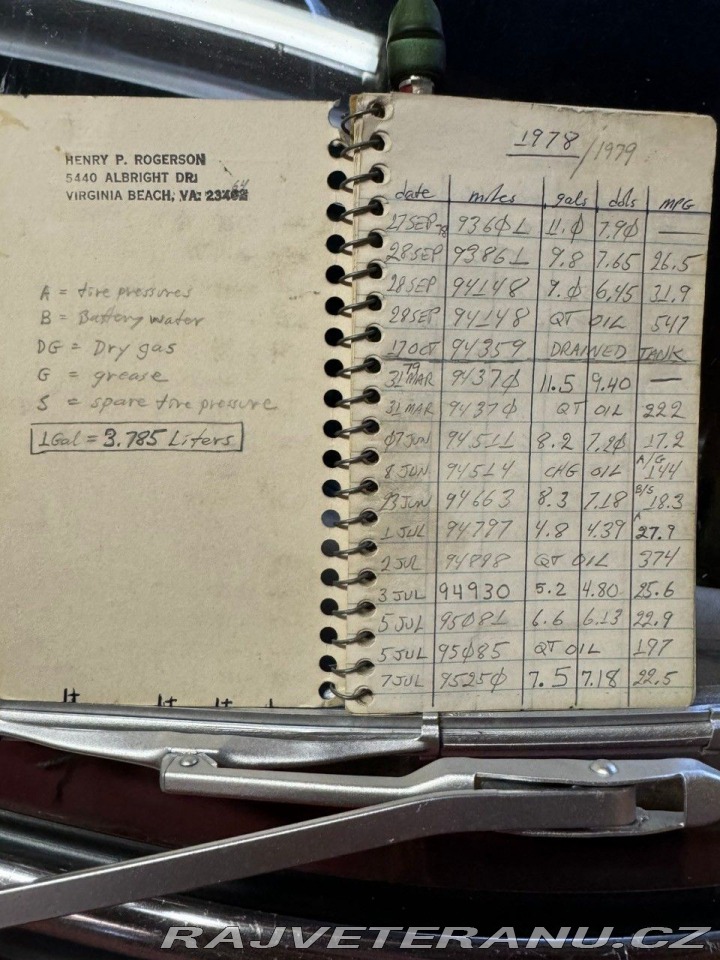 HENRY P. ROGERSON
5440 ALBRIGHT DR.
VIRGINIA BEACH, VA. 23462 64
A = tire pressures
B = Battery water
DG = Dry gas
G = grease
S = spare tire pressure
1Gal = 3.785 Liters
1978/1979
date miles gals dols MPG
27SEP 78 93601 11.0 7.90 —
28SEP 93861 9.8 7.65 26.5
28SEP 94148 9.0 6.45 31.9
28SEP 94148 QT OIL 547
17OCT 94359 DRAINED TANK
79
31MAR 94370 11.5 9.40 —
31MAR 94370 QT OIL 222
07JUN 94511 8.2 7.20 17.2
8JUN 94514 CHG OIL A/G 144
23JUN 94663 8.3 7.18 B/S 18.3
1JUL 94797 4.8 4.39 A 27.9
2JUL 94898 QT OIL 374
3JUL 94930 5.2 4.80 25.6
5JUL 95081 6.6 6.13 22.9
5JUL 95085 QT OIL 197
7JUL 95250 7.5 7.18 22.5
RAJVETERANU.CZ